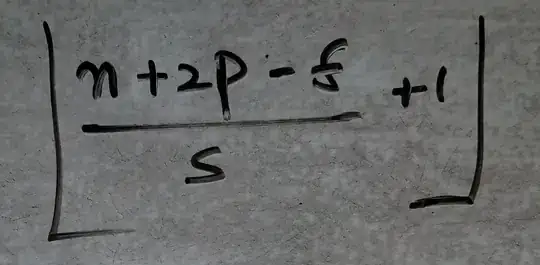 ⌊(n+2p-f)/s +1⌋